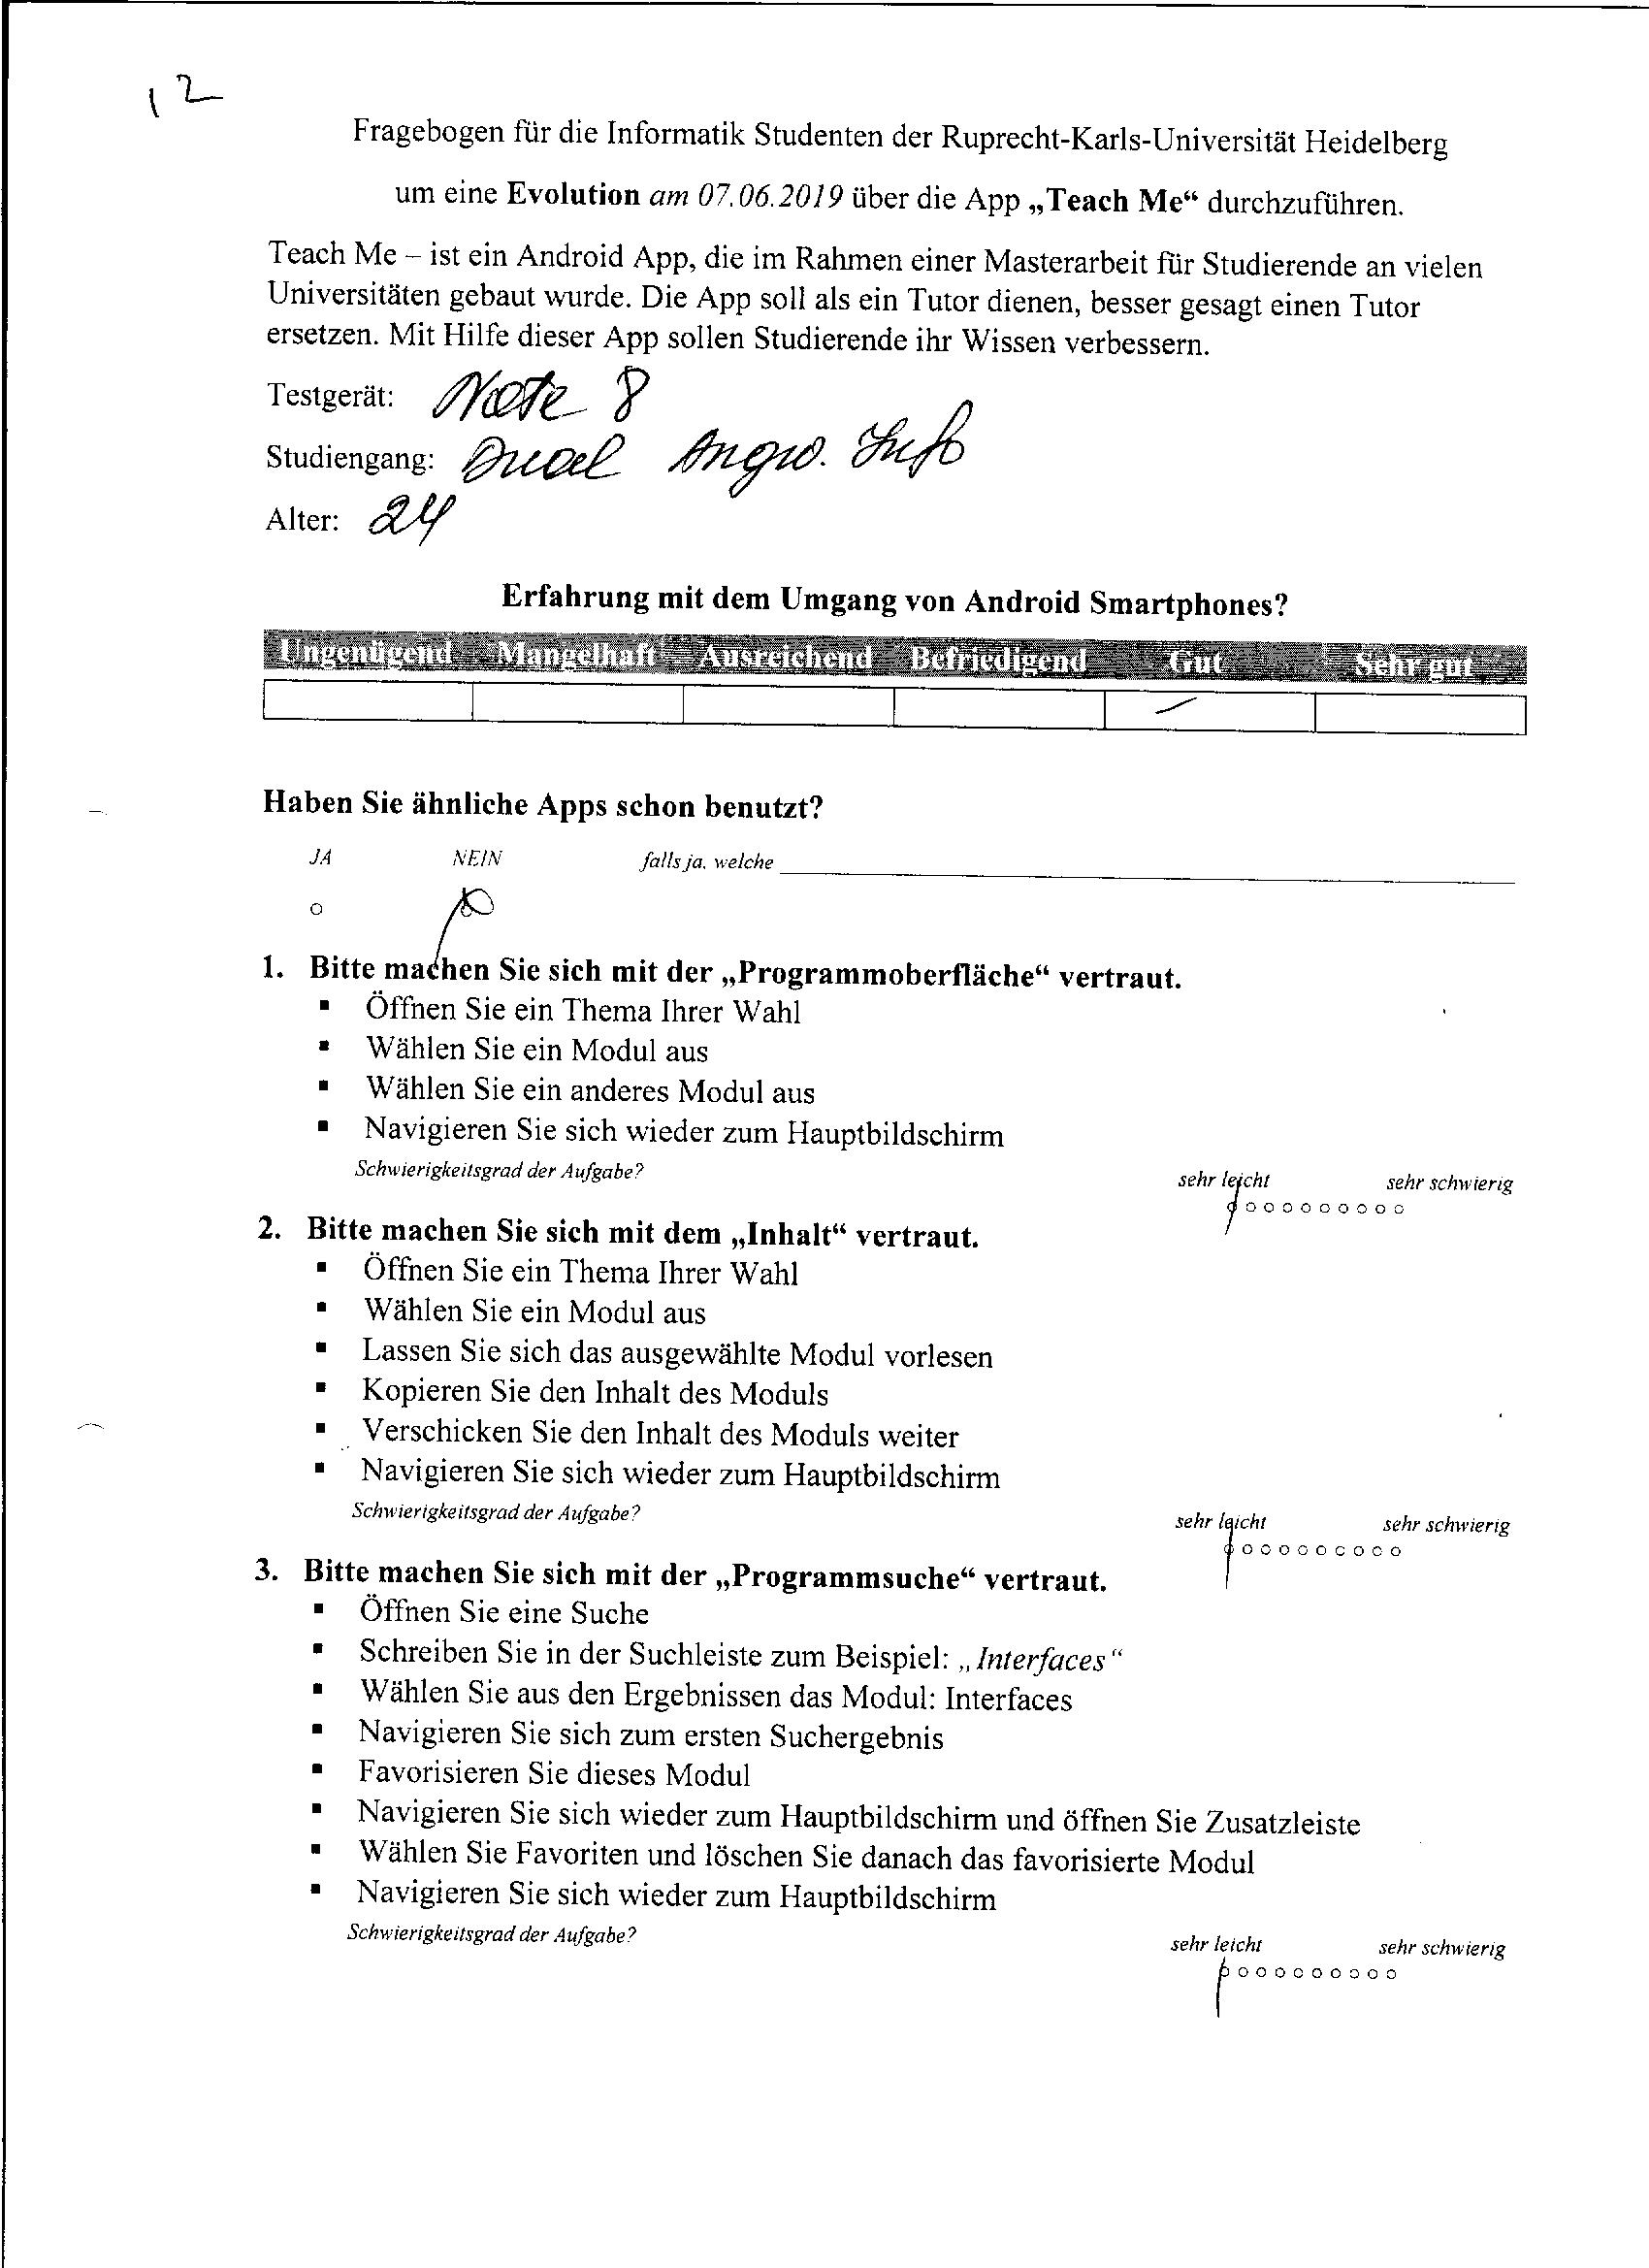 12
Fragebogen für die Informatik Studenten der Ruprecht-Karls-Universität Heidelberg
um eine Evolution am 07.06.2019 über die App „Teach Me“ durchzuführen.
Teach Me – ist ein Android App, die im Rahmen einer Masterarbeit für Studierende an vielen
Universitäten gebaut wurde. Die App soll als ein Tutor dienen, besser gesagt einen Tutor
ersetzen. Mit Hilfe dieser App sollen Studierende ihr Wissen verbessern.
Testgerät: Note 8
Studiengang: Dual Angw. Info
Alter: 24
Erfahrung mit dem Umgang von Android Smartphones?
Ungenügend Mangelhaft Ausreichend Befriedigend Gut Sehr gut
Haben Sie ähnliche Apps schon benutzt?
JA NEIN falls ja, welche
1. Bitte machen Sie sich mit der „Programmoberfläche“ vertraut.
▪ Öffnen Sie ein Thema Ihrer Wahl
▪ Wählen Sie ein Modul aus
▪ Wählen Sie ein anderes Modul aus
▪ Navigieren Sie sich wieder zum Hauptbildschirm
Schwierigkeitsgrad der Aufgabe? sehr leicht sehr schwierig
2. Bitte machen Sie sich mit dem „Inhalt“ vertraut.
▪ Öffnen Sie ein Thema Ihrer Wahl
▪ Wählen Sie ein Modul aus
▪ Lassen Sie sich das ausgewählte Modul vorlesen
▪ Kopieren Sie den Inhalt des Moduls
▪ Verschicken Sie den Inhalt des Moduls weiter
▪ Navigieren Sie sich wieder zum Hauptbildschirm
Schwierigkeitsgrad der Aufgabe? sehr leicht sehr schwierig
3. Bitte machen Sie sich mit der „Programmsuche“ vertraut.
▪ Öffnen Sie eine Suche
▪ Schreiben Sie in der Suchleiste zum Beispiel: „Interfaces“
▪ Wählen Sie aus den Ergebnissen das Modul: Interfaces
▪ Navigieren Sie sich zum ersten Suchergebnis
▪ Favorisieren Sie dieses Modul
▪ Navigieren Sie sich wieder zum Hauptbildschirm und öffnen Sie Zusatzleiste
▪ Wählen Sie Favoriten und löschen Sie danach das favorisierte Modul
▪ Navigieren Sie sich wieder zum Hauptbildschirm
Schwierigkeitsgrad der Aufgabe? sehr leicht sehr schwierig